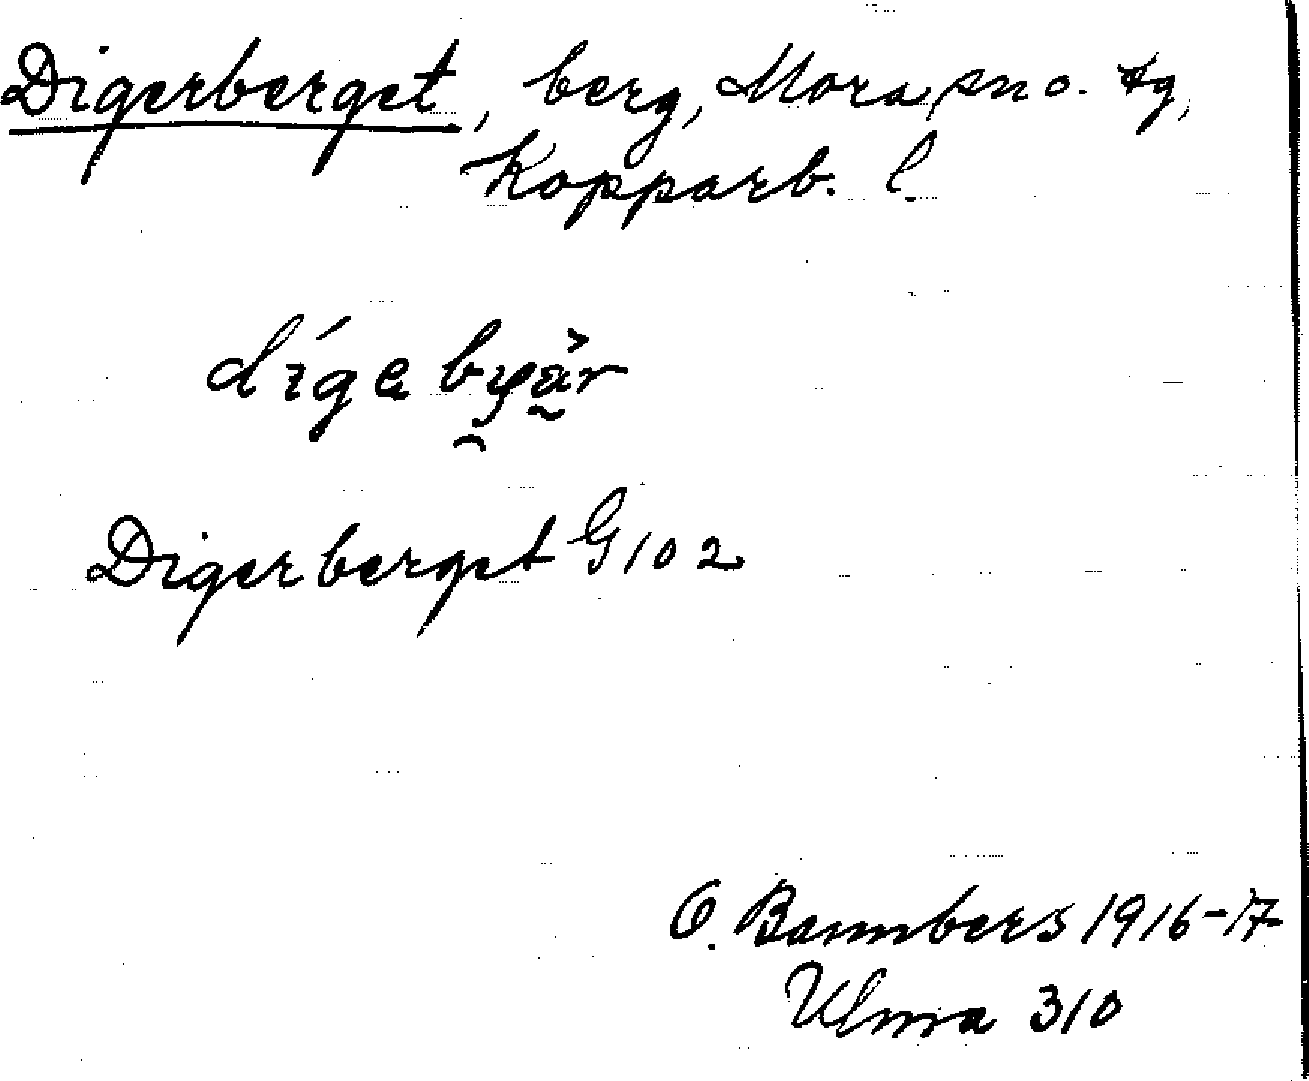 Digerberget, berg, Mora sn o. tg,
Kopparb. l.
Digerberget G 102
O. Bannbers 1916-17
Ulma 310